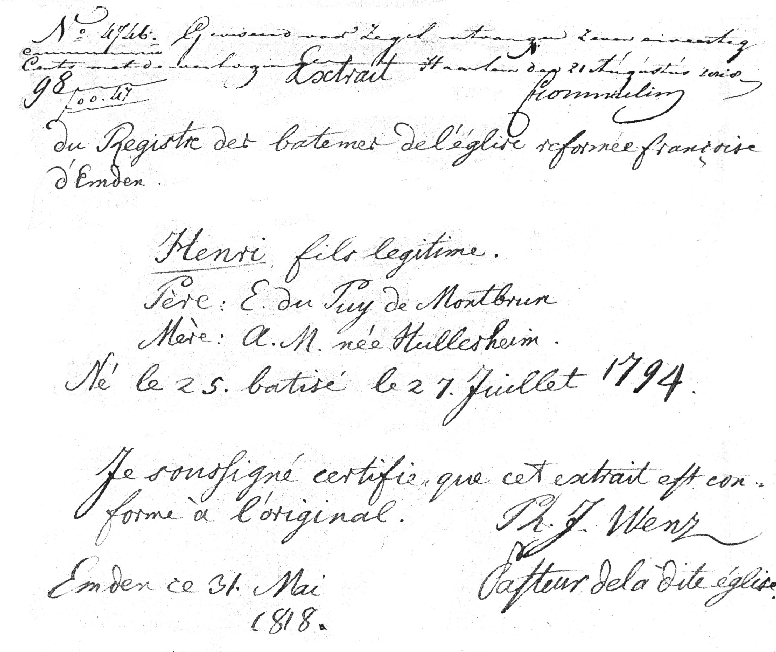 No. 4746. Gewiseerd voor Zegel ontvangen Zeven en veertig
Cents met de verhoging Haarlem den 21 Augustus 1818
98
f 00.47
Crommelin
Extrait
du Registre des batemes de l'église reformée françoise
d'Emden.
Henri, fils legitime.
Père: E. du Puy de Montbrun
Mère: A. M. née Hullesheim.
Né le 25. batisé le 27. Juillet 1794.
Je soussigné certifie, que cet extrait est con-
forme à l'original.
Ph. J. Wenz
Pasteur de la dite église.
Emden ce 31. Mai
1818.